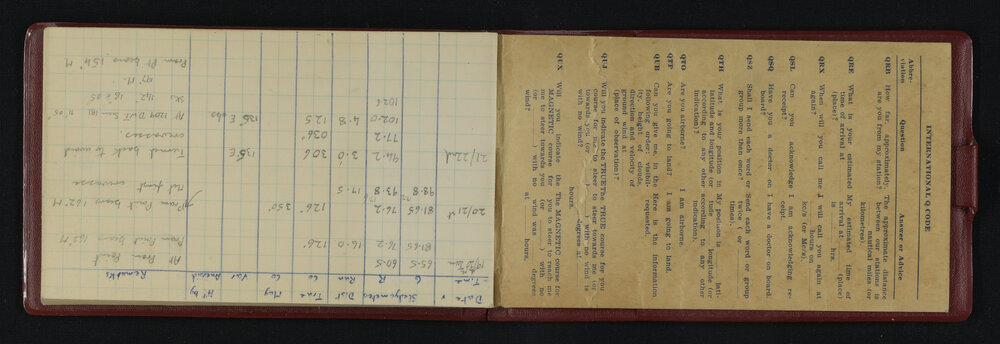 INTERNATIONAL Q CODE
Abbre-
viation Question Answer or Advice
QRB How far, approximately, are you from my station? The approximate distance between our stations is nautical miles (or kilometres).
QRE What is your estimated time of arrival at (place)? My estimated time of arrival at (place) is hrs.
QRX When will you call me again? I will call you again at hours on kc/s (or Mc/s).
QSL Can you acknowledge receipt? I am acknowledging receipt.
QSQ Have you a doctor on board? I have a doctor on board.
QSZ Shall I send each word or group more than once? Send each word or group twice (or times).
QTH What is your position in latitude and longitude (or according to any other indication)? My position is latitude longitude (or according to any other indication).
QTO Are you airborne? I am airborne.
QTP Are you going to land? I am going to land.
QUB Can you give me, in the following order: visibility, height of clouds, direction and velocity of ground wind at (place of observation)? Here is the information requested.
QUJ Will you indicate the TRUE course for me to steer towards you (or ) with no wind? The TRUE course for you to steer towards me (or ) with no wind is degrees at hours.
QUX Will you indicate the MAGNETIC course for me to steer towards you (or ) with no wind? The MAGNETIC course for you to steer to reach me (or ) with no wind was degrees at hours.
Date & Time Sledgemeter Run Dist True Co Mag Co Var Aneroid Ht by Remarks
G R
65-5 60-5 At Prom Point
81-65 76-2 16.0 126° Prom Point bears 162° M
20/21st 81-65 76-2 126° 350° Prom Point bears 162° M
98-8 93-8 17.5
21/22nd 94-2 3.0 306 135°E Turned back to avoid
77-2 036° crevasses.
102-0 4.8 12.5 135°E obs At 1209 GMT Sun 181° 11'05
102.6 142° 16'05
97° M.
Prom Pt bears 154° M